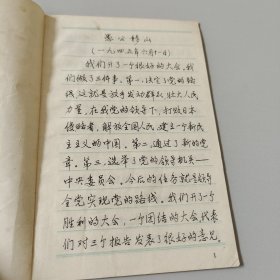 愚公移山
(一九四五年六月十一日)
我们开了一个很好的大会。我
们做了三件事。第一,决定了党的路
线,这就是放手发动群众,壮大人民
力量,在我党的领导下,打败日本
侵略者,解放全国人民,建立一个新民
主主义的中国。第二,通过了新的党
章。第三,选举了党的领导机关——
中央委员会。今后的任务就是领导
全党实现党的路线。我们开了一个
胜利的大会,一个团结的大会。代表
们对三个报告发表了很好的意见。
1